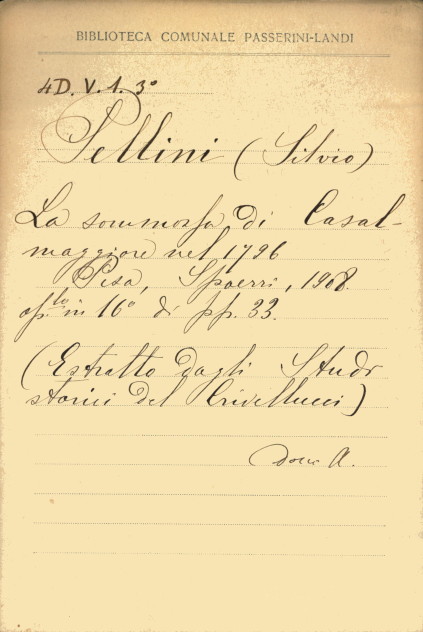 BIBLIOTECA COMUNALE PASSERINI-LANDI
4D. V. 1. 3°
Pellini (Silvio)
La sommossa di Casal-
maggiore nel 1796
Pisa, Spoerri, 1908.
op.lo in 16° di pp. 33.
(Estratto dagli Studi
storici del Crivellucci)
A.